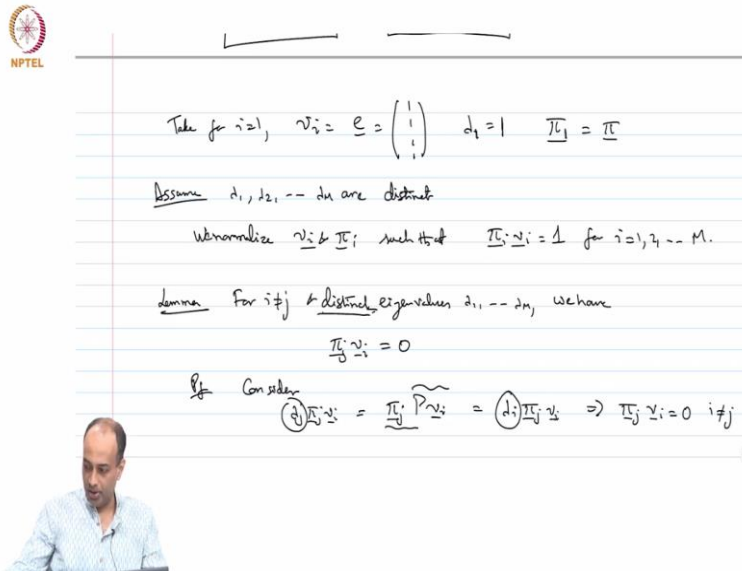 NPTEL
Take for i=1, v_i = e = (1 1 1 1) λ_1 = 1 π_1 = π
Assume λ_1, λ_2, -- λ_M are distinct
We normalize v_i & π_i such that π_i v_i = 1 for i=1,2,-- M.
Lemma For i≠j & distinct eigenvalues λ_1, -- λ_M, we have
π_j v_i = 0
Pf Consider
λ_j π_j v_i = π_j P v_i = λ_i π_j v_i => π_j v_i = 0 i≠j